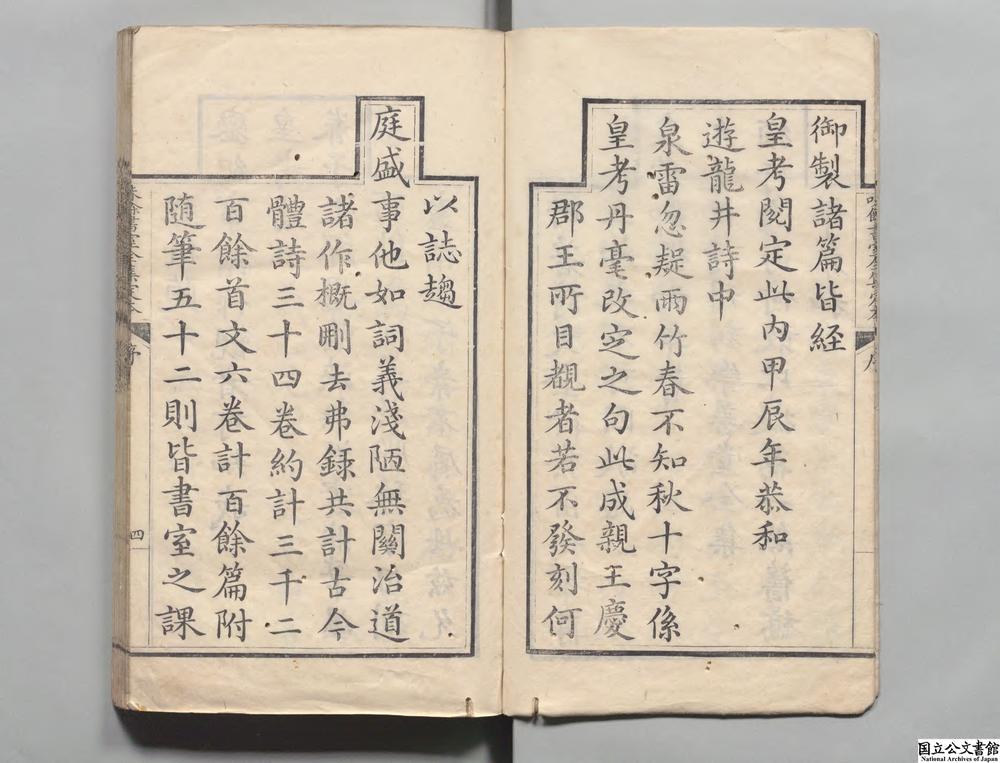 御製諸篇皆經
皇考閱定此内甲辰年恭和
遊龍井詩中
泉雷忽疑雨竹春不知秋十字係
皇考丹毫改定之句此成親王慶
郡王所目覩者若不發刻何
以誌趨
庭盛事他如詞義淺陋無關治道
諸作概刪去弗録共計古今
體詩三十四卷約計三千二
百餘首文六卷計百餘篇附
隨筆五十二則皆書室之課
序
四
国立公文書館
National Archives of Japan